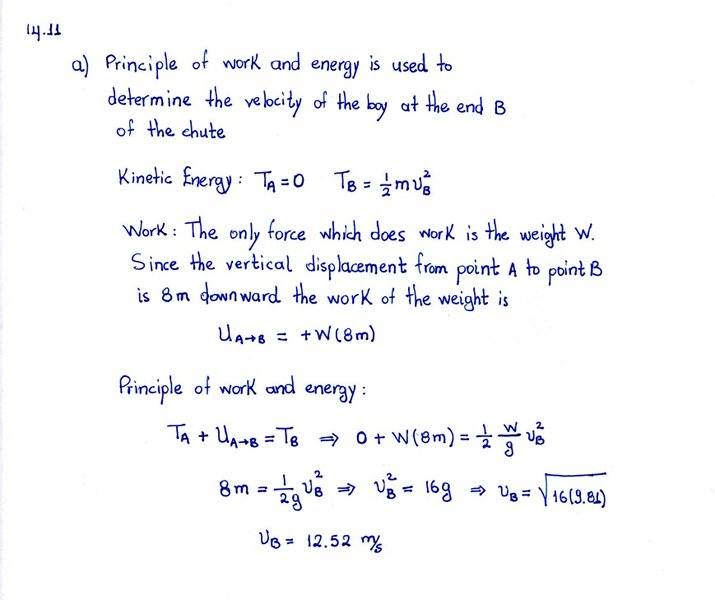 14.11
a) Principle of work and energy is used to
determine the velocity of the boy at the end B
of the chute
Kinetic Energy: T_A = 0 T_B = 1/2 m v_B^2
Work: The only force which does work is the weight W.
Since the vertical displacement from point A to point B
is 8m downward the work of the weight is
U_A→B = +W(8m)
Principle of work and energy:
T_A + U_A→B = T_B ⇒ 0 + W(8m) = 1/2 W/g v_B^2
8m = 1/2g v_B^2 ⇒ v_B^2 = 16g ⇒ v_B = √16(9.81)
v_B = 12.52 m/s